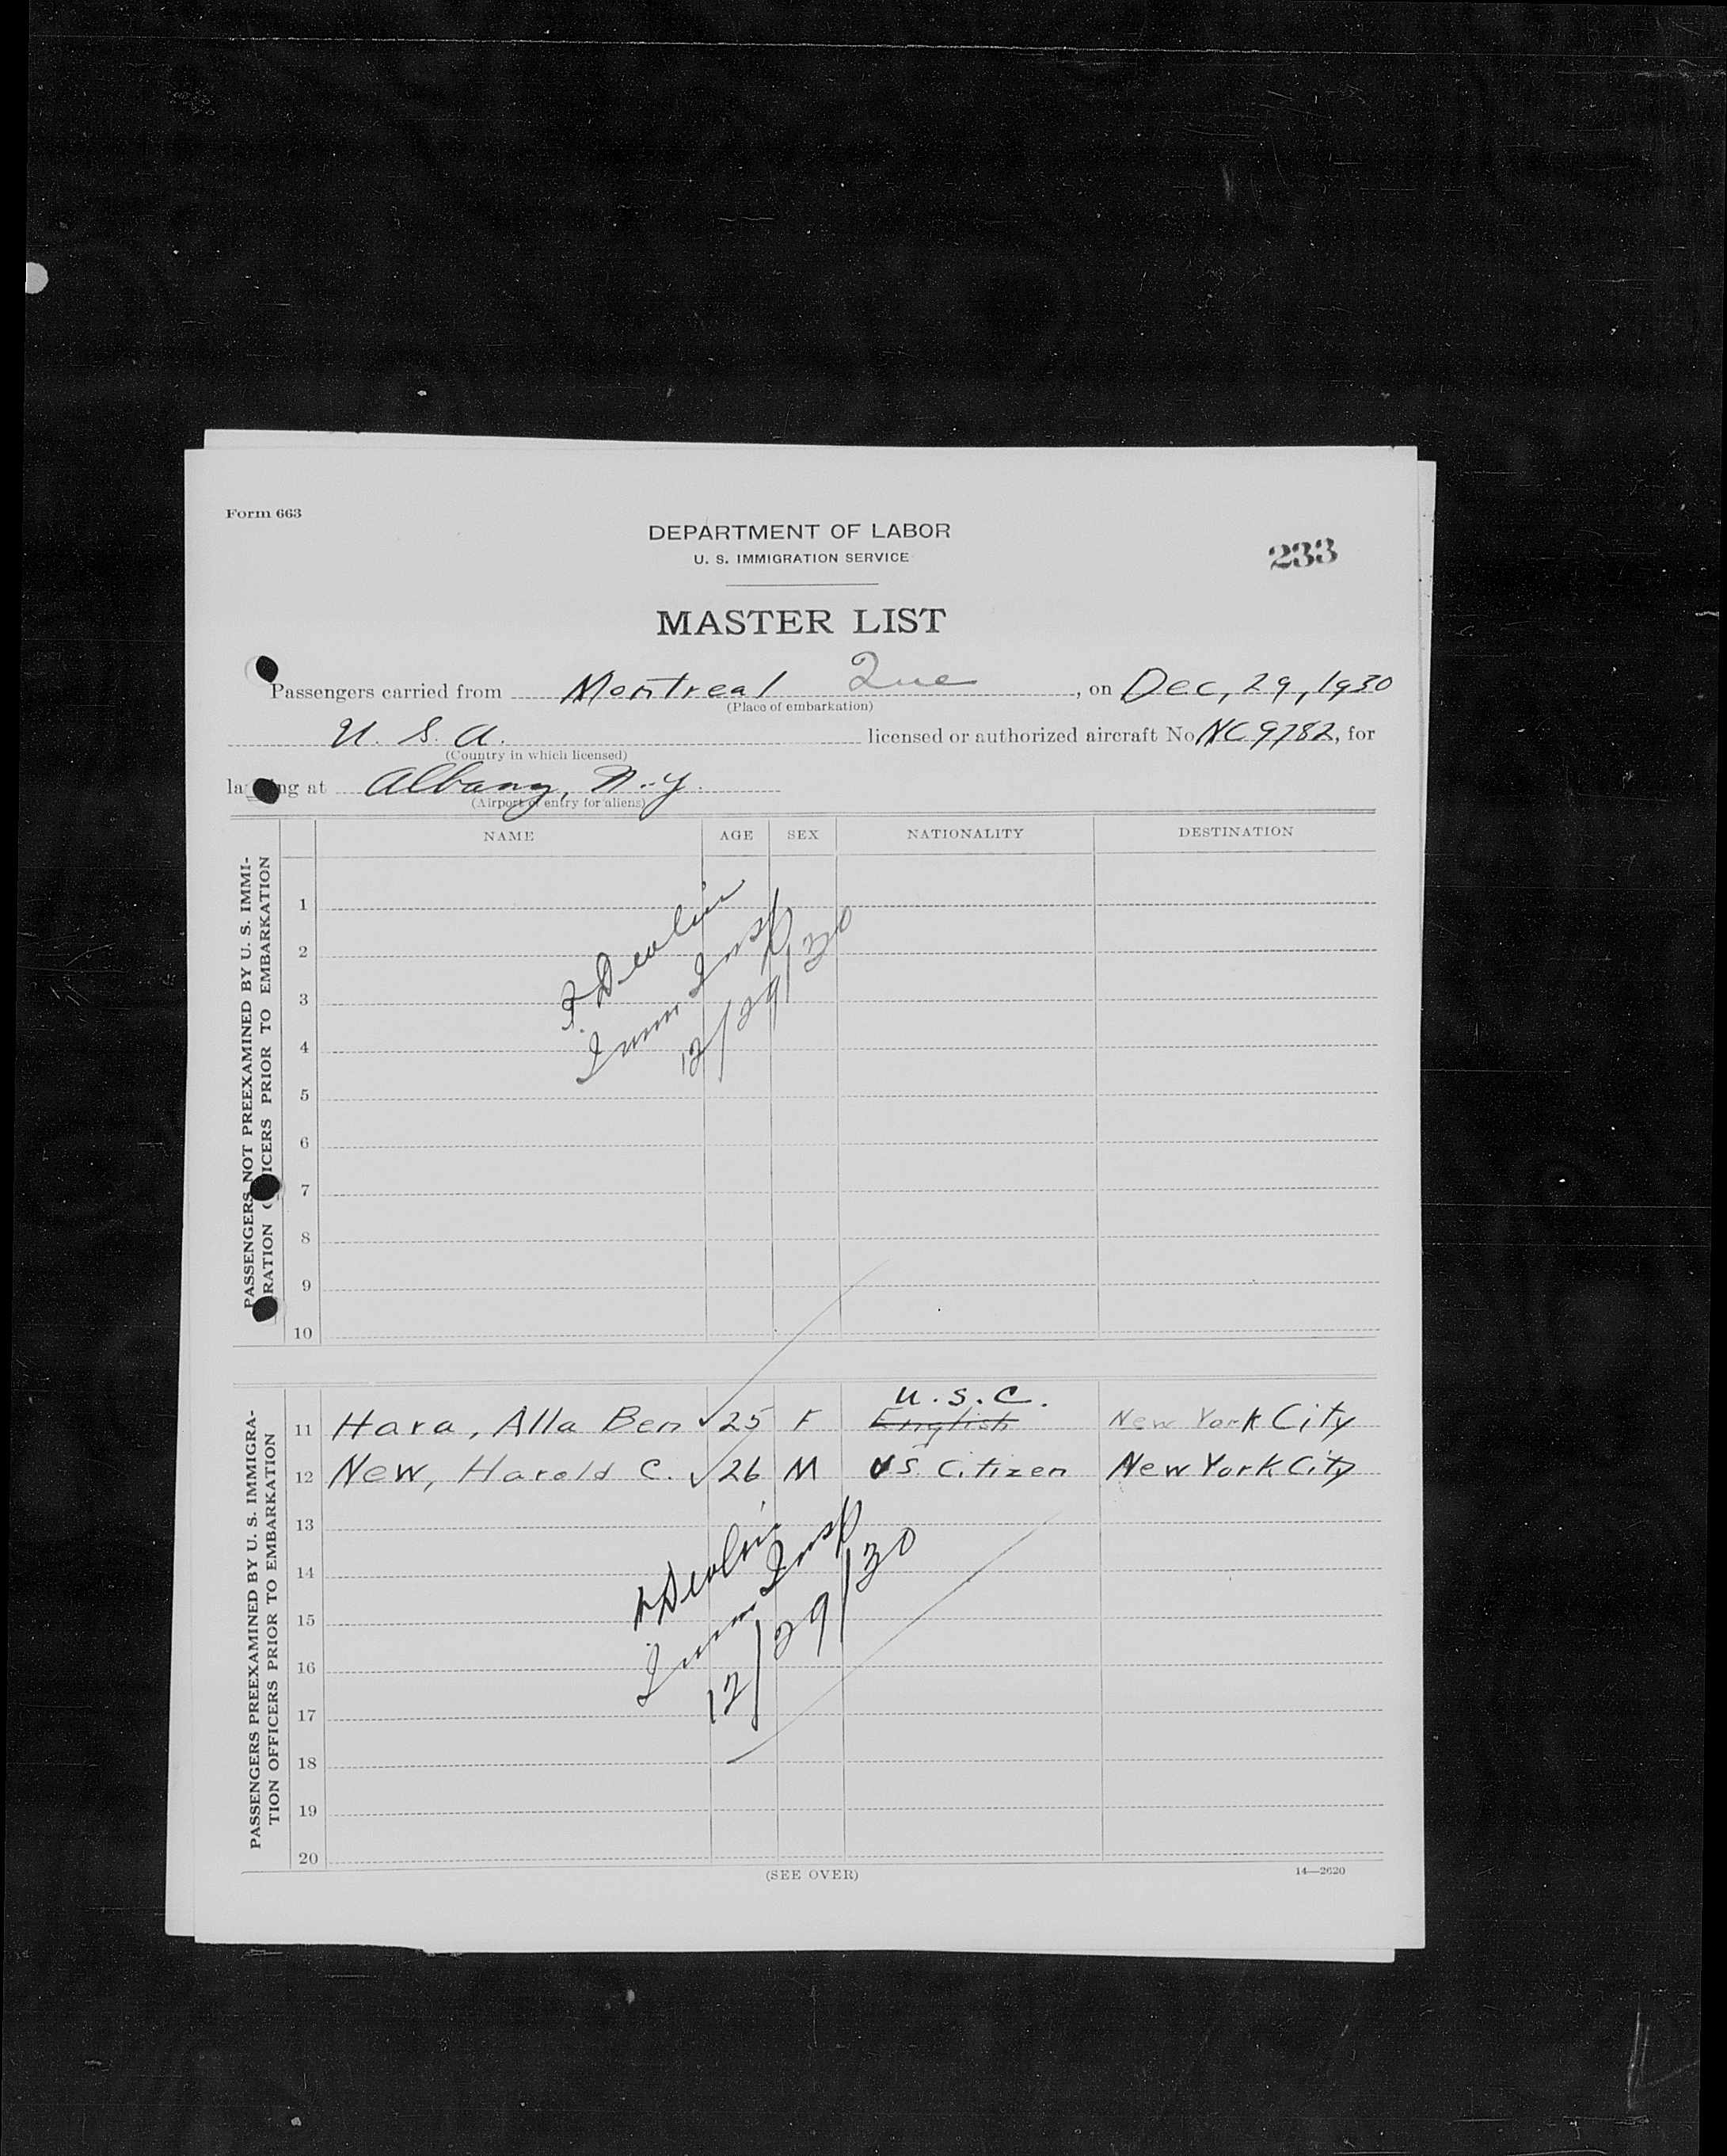 Form 663
DEPARTMENT OF LABOR
U. S. IMMIGRATION SERVICE
233
MASTER LIST
Passengers carried from Montreal Que, on Dec, 29, 1930
(Place of embarkation)
U. S. A. licensed or authorized aircraft No NC 9782, for
(Country in which licensed)
la ng at Albany, N.Y.
(Airport of entry for aliens)
NAME AGE SEX NATIONALITY DESTINATION
PASSENGERS NOT PREEXAMINED BY U. S. IMMI-
RATION ICERS PRIOR TO EMBARKATION
1
2
3
4
5
6
7
8
9
10
F. Devlin
Imm Insp
12/29/30
PASSENGERS PREEXAMINED BY U. S. IMMIGRA-
TION OFFICERS PRIOR TO EMBARKATION
U.S.C.
11 Hara, Alla Ben ✓ 25 F English New York City
12 New, Harold C. ✓ 26 M US. Citizen New York City
13
14
15
16
17
18
19
20
F Devlin
Imm Insp
12/29/30
(SEE OVER)
14—2620